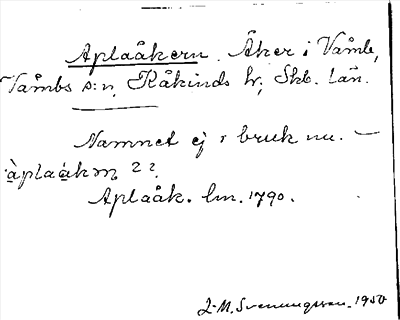 Aplaåkern. Åker i Våmb,
Våmbs s:n, Kåkinds hr, Skb. län.
Namnet ej i bruk nu. —
àplaákɱ ??.
Aplaåk. lm. 1790.
L-M. Svenungsson. 1950